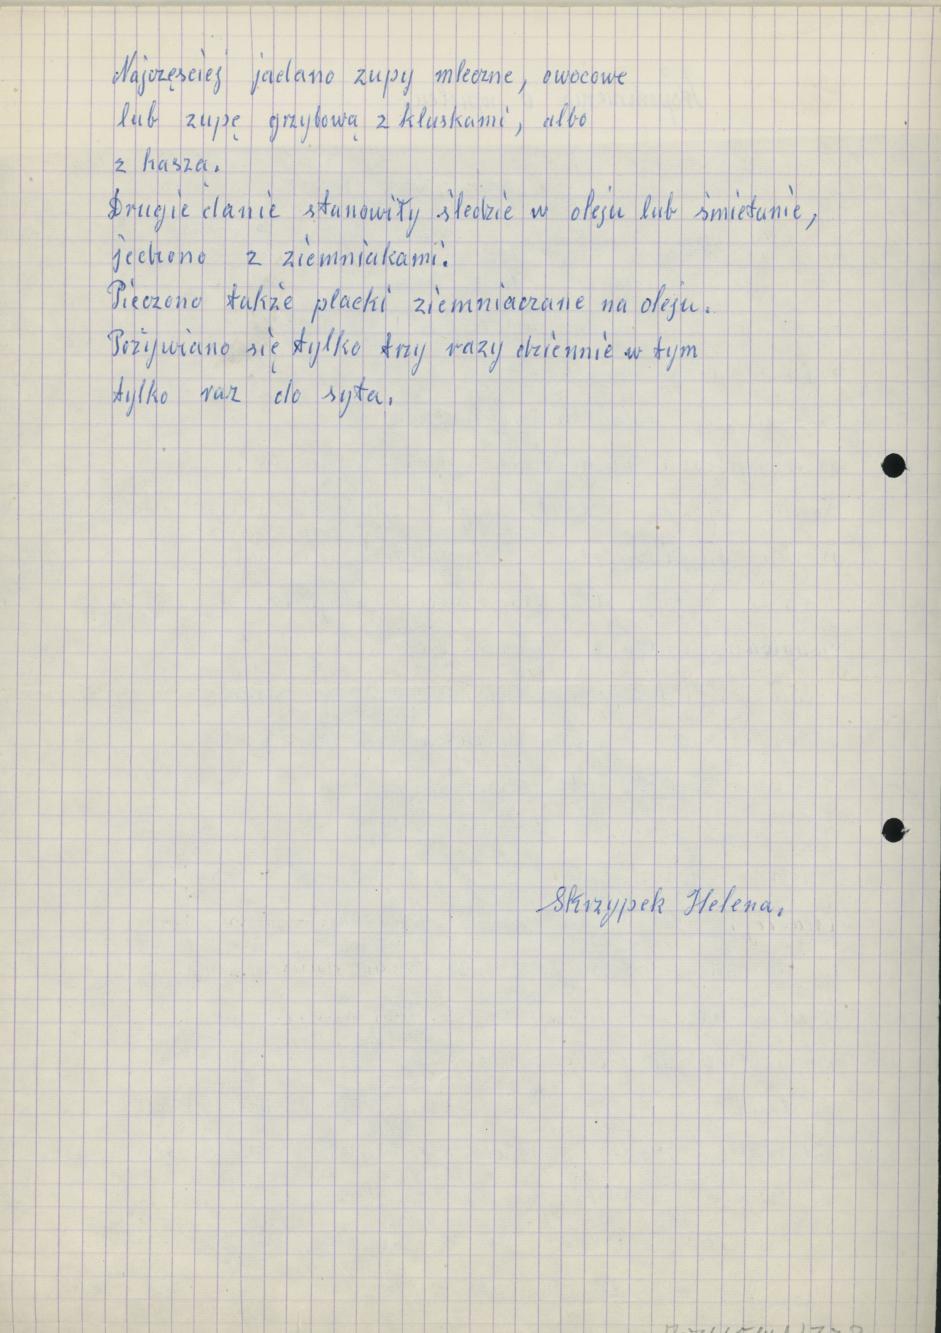 Najczęściej jadano zupy mleczne, owocowe
lub zupę grzybową z kluskami, albo
z kaszą.
Drugie danie stanowiły śledzie w oleju lub śmietanie,
jedzono z ziemniakami.
Pieczono także placki ziemniaczane na oleju.
Pożywiano się tylko trzy razy dziennie w tym
tylko raz do syta.
Skrzypek Helena.